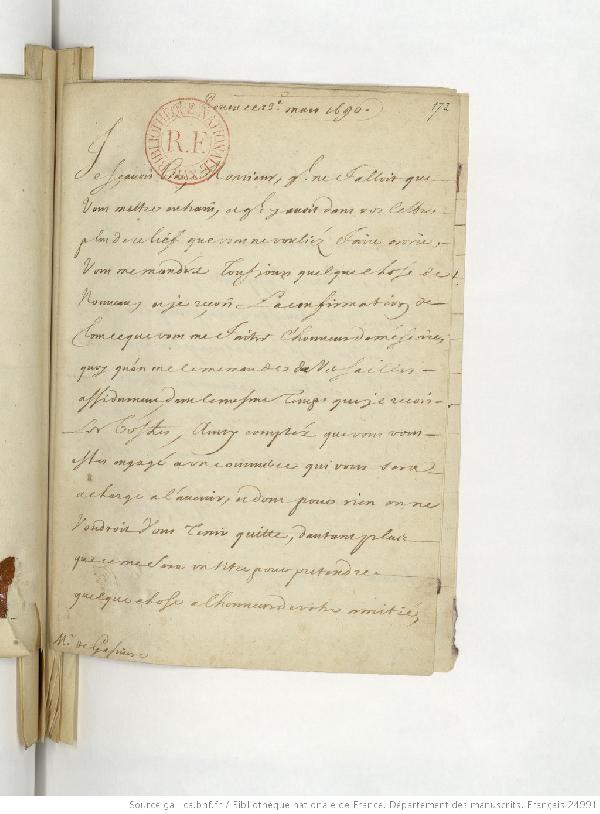 Rouen ce 23e mars 1690.
172
BIBLIOTHEQUE NATIONALE
R.F.
MSS
Je sçavois bien Monsieur, qu'il ne falloit que
vous mettre en train, et qu'il y avoit dans vos lettres
plus de relief que vous ne vouliéz faire croire,
Vous me mandés tousjours quelque chose de
Nouveau, et je reçois la confirmation de
tout ce que vous me faites l'honneur de m'escrire,
quoy qu'on me le mande de Versailles
assidument dans le mesme temps que je reçois
les vostres, Ainsy comptéz que vous vous
estes engagé a un commerce qui vous sera
a charge a l'avenir, et dont pour rien on ne
voudroit vous tenir quitte, d'autant plus
que ce me sera un titre pour pretendre
quelque chose a l'honneur de vostre amitié,
Mr. de
Source gallica.bnf.fr / Bibliothèque nationale de France. Département des manuscrits. Français 24991